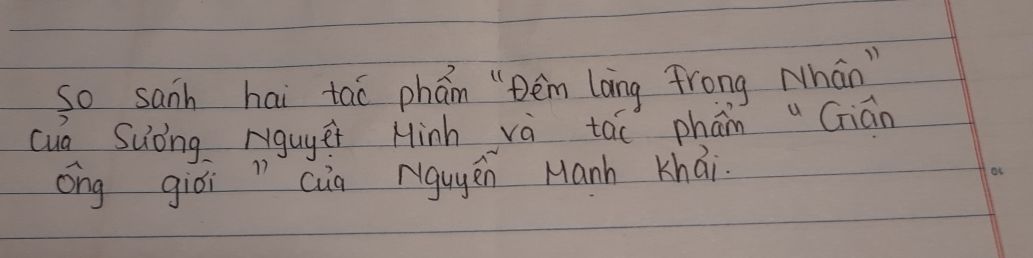 So sánh hai tác phẩm "Đêm làng Trọng Nhân"
của Sương Nguyệt Minh và tác phẩm "Giận
ông giời" của Nguyễn Mạnh Khải.